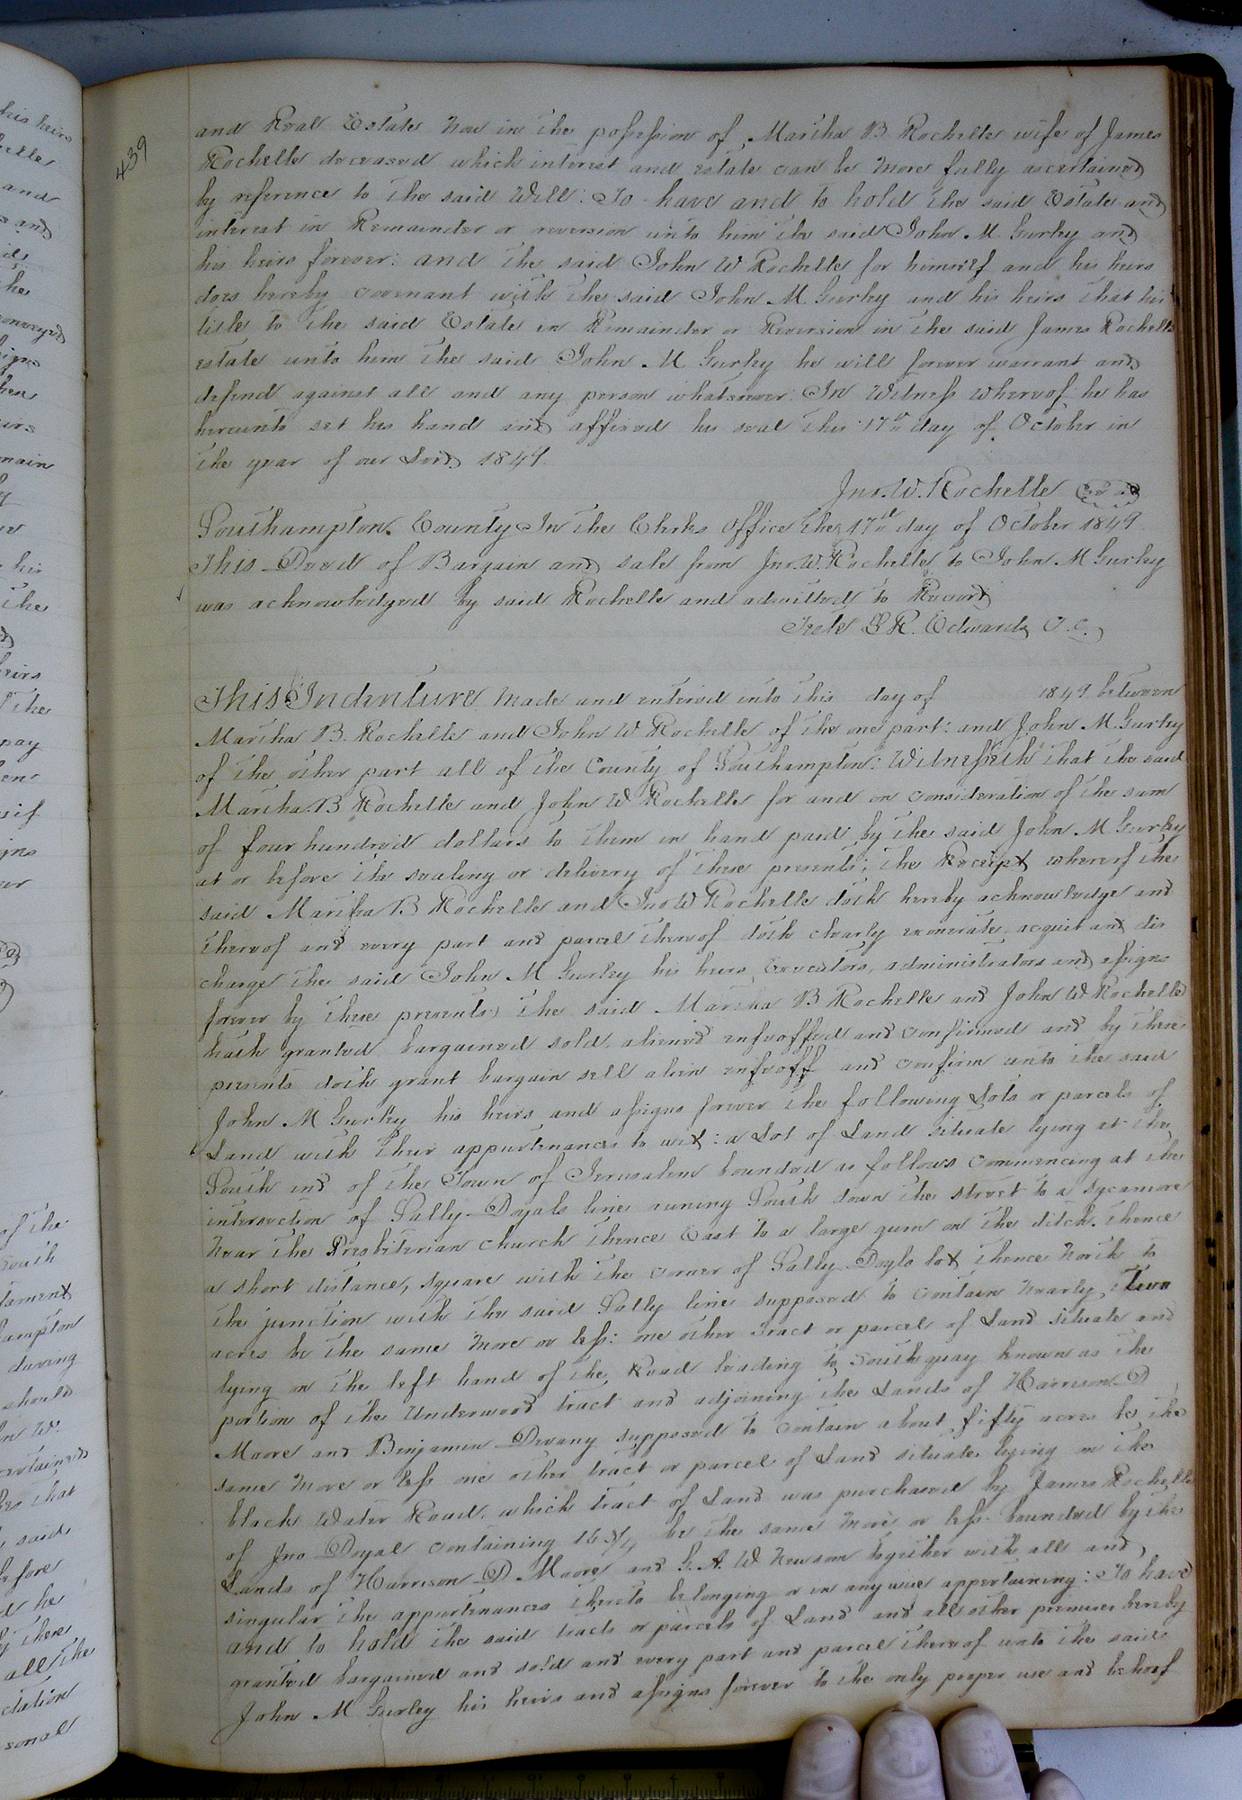 439
and Real Estate now in the possession of Martha B Rochelle wife of James
Rochelle deceased which interest and estate can be more fully ascertained
by reference to the said Will: To have and to hold the said Estate and
interest in Remainder or reversion unto him the said John M Gurley and
his heirs forever: and the said John W Rochelle for himself and his heirs
does hereby covenant with the said John M Gurley and his heirs that his
title to the said Estate in Remainder or Reversion in the said James Rochelle
estate unto him the said John M Gurley he will forever warrant and
defend against all and any person whatsoever: In Witness whereof he has
hereunto set his hand and affixed his seal this 17th day of October in
the year of our Lord 1849.
Jno. W. Rochelle
Southampton County In the Clerks Office the 17th day of October 1849
This Deed of Bargain and sale from Jno. W. Rochelle to John M Gurley
was acknowledged by said Rochelle and admitted to Record
Teste L R. Edwards C. C.
This Indenture made and entered into this day of 1849 between
Martha B. Rochelle and John W Rochelle of the one part: and John M. Gurley
of the other part all of the County of Southampton: Witnesseth that the said
Martha B Rochelle and John W Rochelle for and on consideration of the sum
of four hundred dollars to them in hand paid by the said John M Gurley
at or before the sealing or delivery of these presents; the Receipt whereof the
said Martha B Rochelle and Jno W Rochelle doth hereby acknowledge and
thereof and every part and parcel thereof doth clearly exonerate, acquit and dis
charge the said John M Gurley his heirs, Executors, administrators and assigns
forever by these presents, the said Martha B Rochelle and John W Rochelle
hath granted bargained sold, aliened enfeoffed and confirmed and by these
presents doth grant bargain sell alien enfeoff and confirm unto the said
John M Gurley his heirs and assigns forever the following Lots or parcels of
Land with their appurtenances to wit: a Lot of Land situate lying at the
South end of the Town of Jerusalem bounded as follows commencing at the
intersection of Sally Doyals line runing South down the street to a sycamore
near the Presbiterian church thence East to a large gum on the ditch. thence
a short distance, square with the corner of Sally Doyls lot thence North to
the junction with the said Sally line supposed to contain nearly two
acres be the same more or less: one other tract or parcel of Land situate and
lying on the left hand of the Road leading to South quay known as the
portion of the Underwood tract and adjoining the Lands of Harrison D
Moore and Benjamin Devany supposed to contain about fifty acres be the
same more or less one other tract or parcel of Land situate lying on the
black Water Road, which tract of Land was purchased by James Rochelle
of Jno Doyal containing 16 3/4 be the same more or less bounded by the
Lands of Harrison D. Moore and G. A. W Newsom together with all and
singular the appurtenances thereto belonging or in any wise appertaining: To have
and to hold the said tracts or parcels of Land and all other premises hereby
granted bargained and sold and every part and parcel thereof unto the said
John M Gurley his heirs and assigns forever to the only proper use and behoof